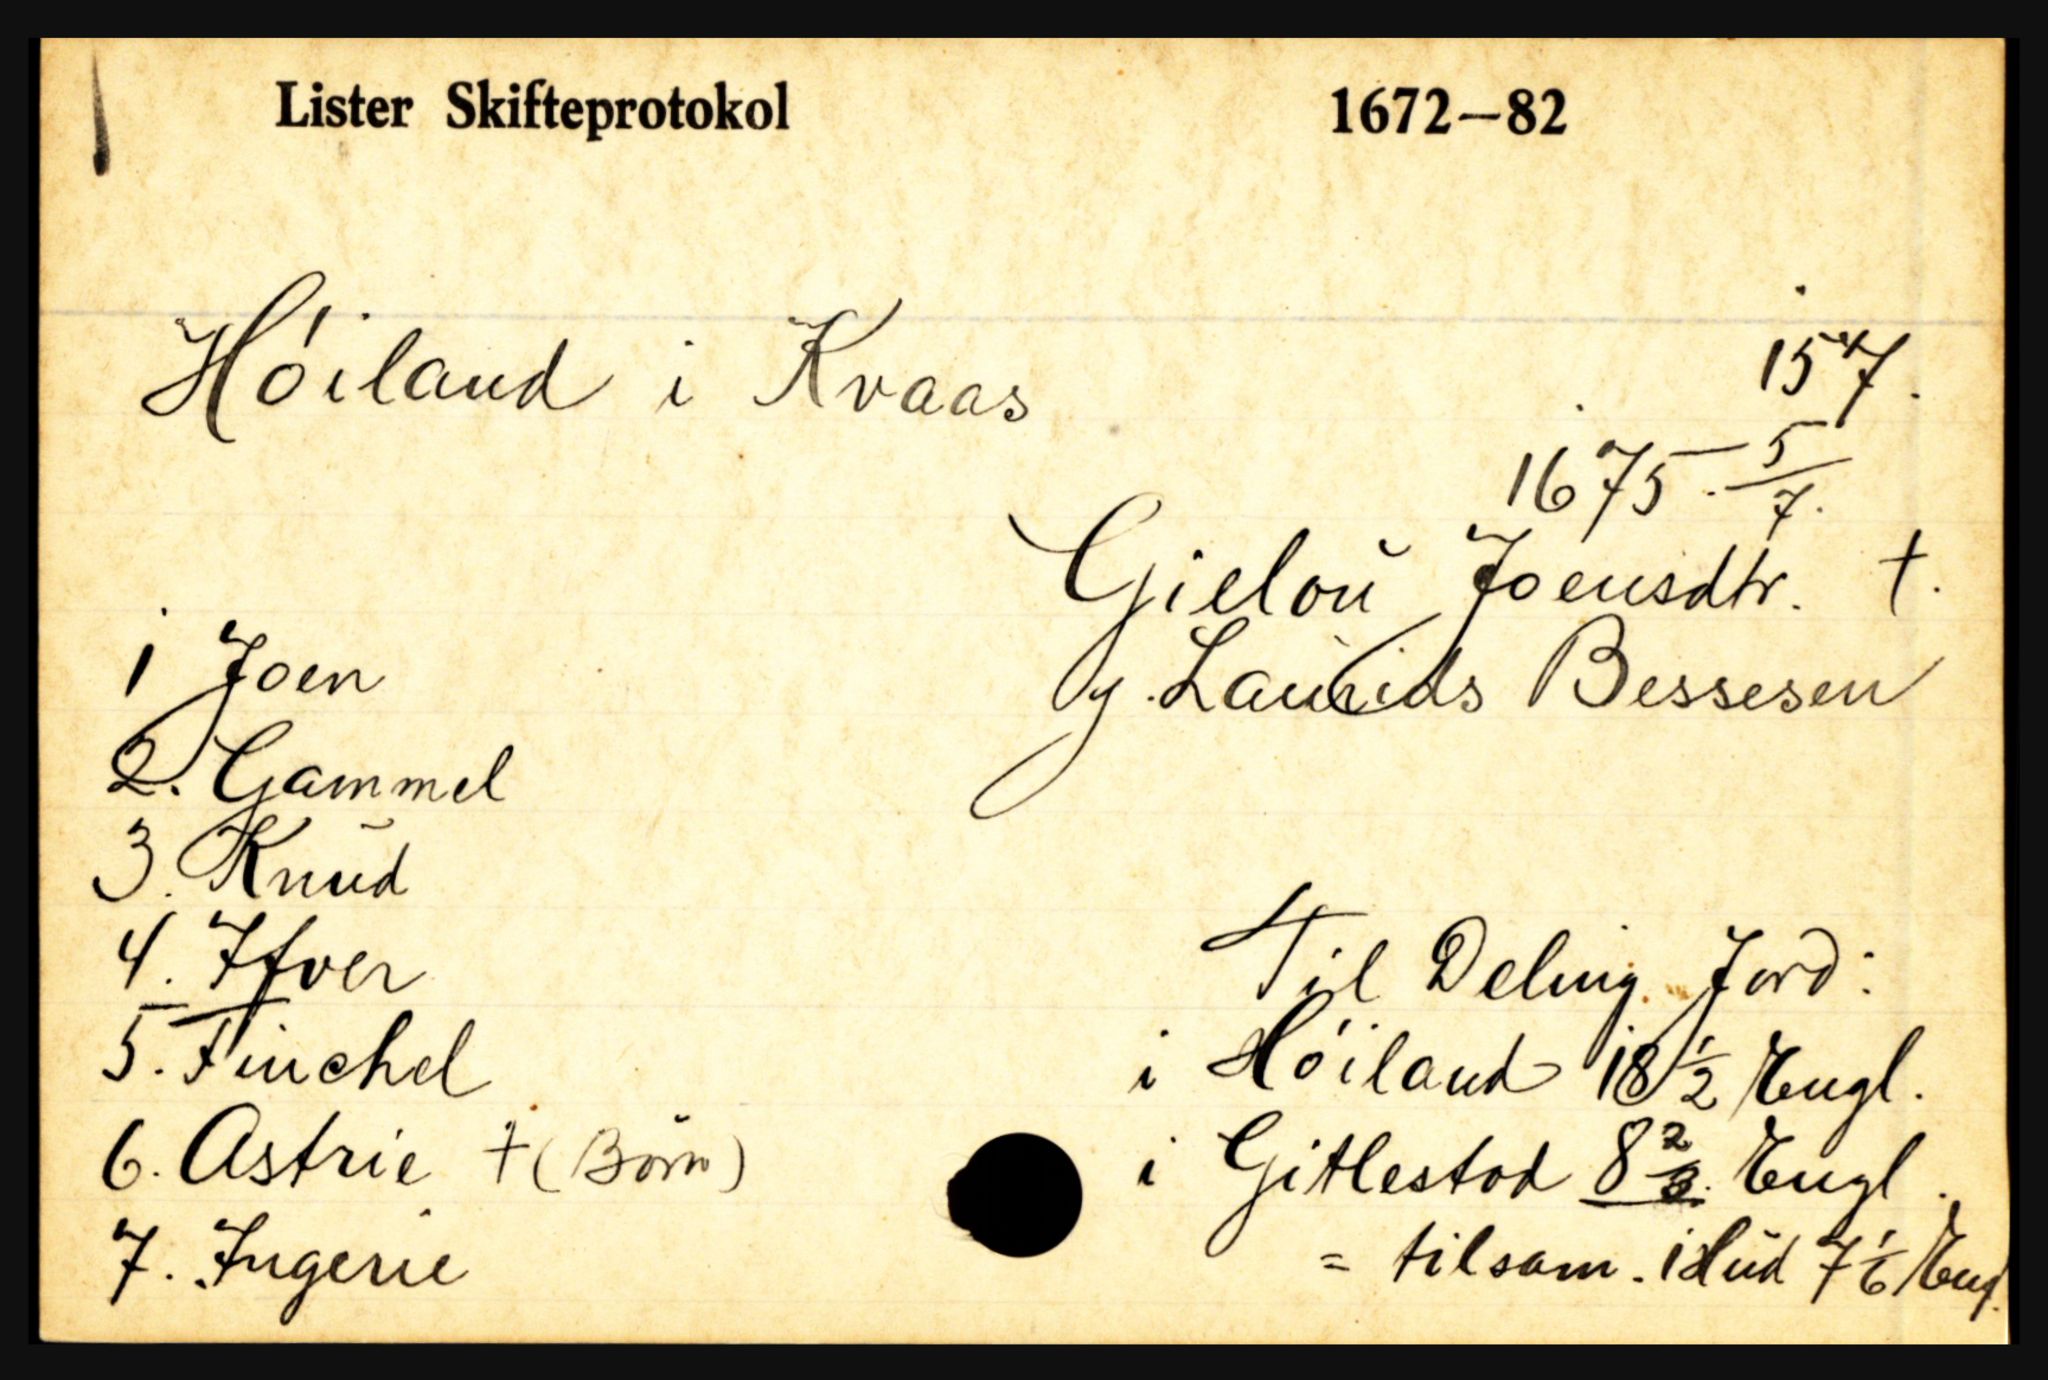 Lister Skifteprotokol 1672–82
Höiland i Kvaas
157.
1675. 5/7.
Gielou Joensdtr. †.
g. Laurids Bessesen
1 Joen
2. Gammel
3. Knud
4. Ifver
5. Finchel
6. Astrie † (Börn)
7. Ingerie
Til Deling Jord:
i Höiland 18 1/2 Engl.
i Gitlestod 8 2/3 Engl.
= tilsam. 1 Hud 7 1/6 Engl.